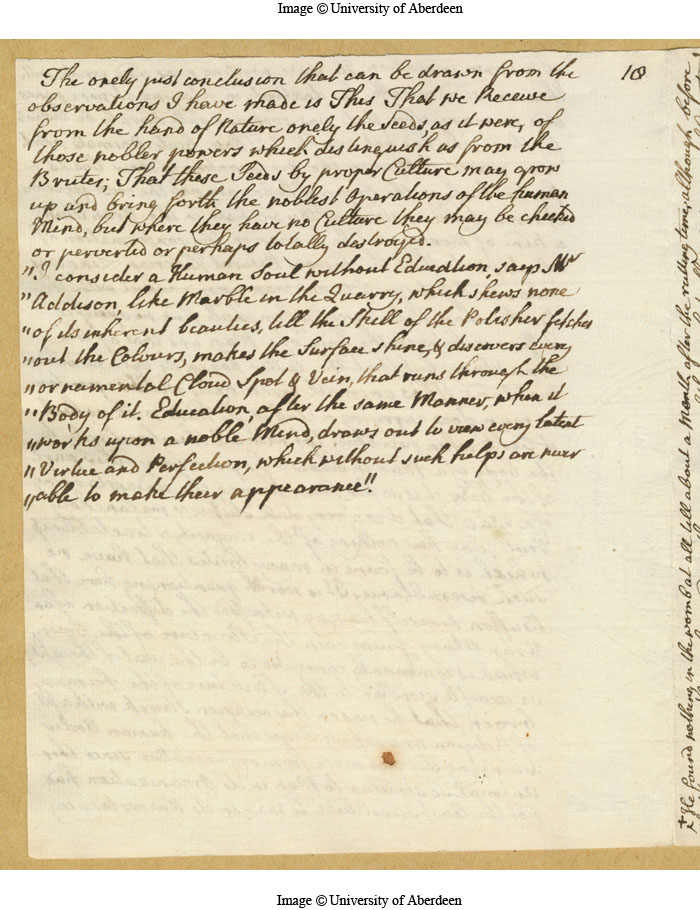 Image © University of Aberdeen
18
The onely just conclusion that can be drawn from the
observations I have made is This That we Receive
from the hand of Nature onely the seeds, as it were, of
those nobler powers which distinguish us from the
Brutes; That these Seeds by proper Culture may grow
up and bring forth the noblest Operations of the human
Mind, but where they have no Culture they may be checked
or perverted or perhaps totally destroyed.
"I consider a Human Soul without Education, says Mr
"Addison, like Marble in the Quarry, which shews none
"of its inherent beauties, till the Skill of the Polisher fetches
"out the Colours, makes the Surface shine, & discovers every
"ornamental Cloud Spot & Vein, that runs through the
"Body of it. Education, after the same Manner, when it
"works upon a noble Mind, draws out to view every latent
"Virtue and Perfection, which without such helps are never
"able to make their appearance".
+ He found nothing in the womb at all till about a Month after the rutting time, although before
Image © University of Aberdeen